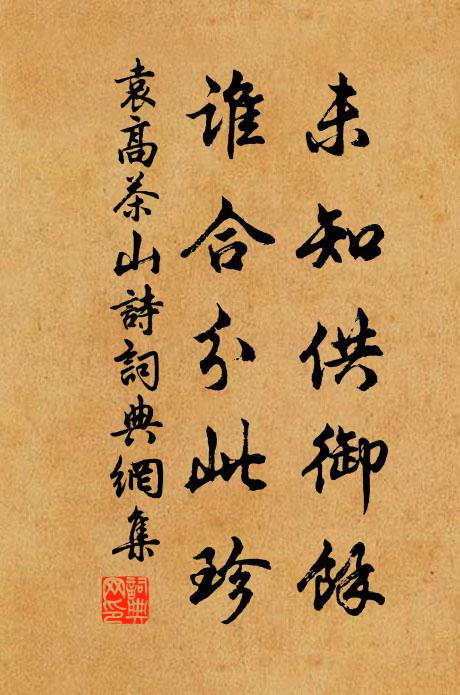 未知供御餘
誰合分此珍
袁高茶山詩詞典網集
詞典網印